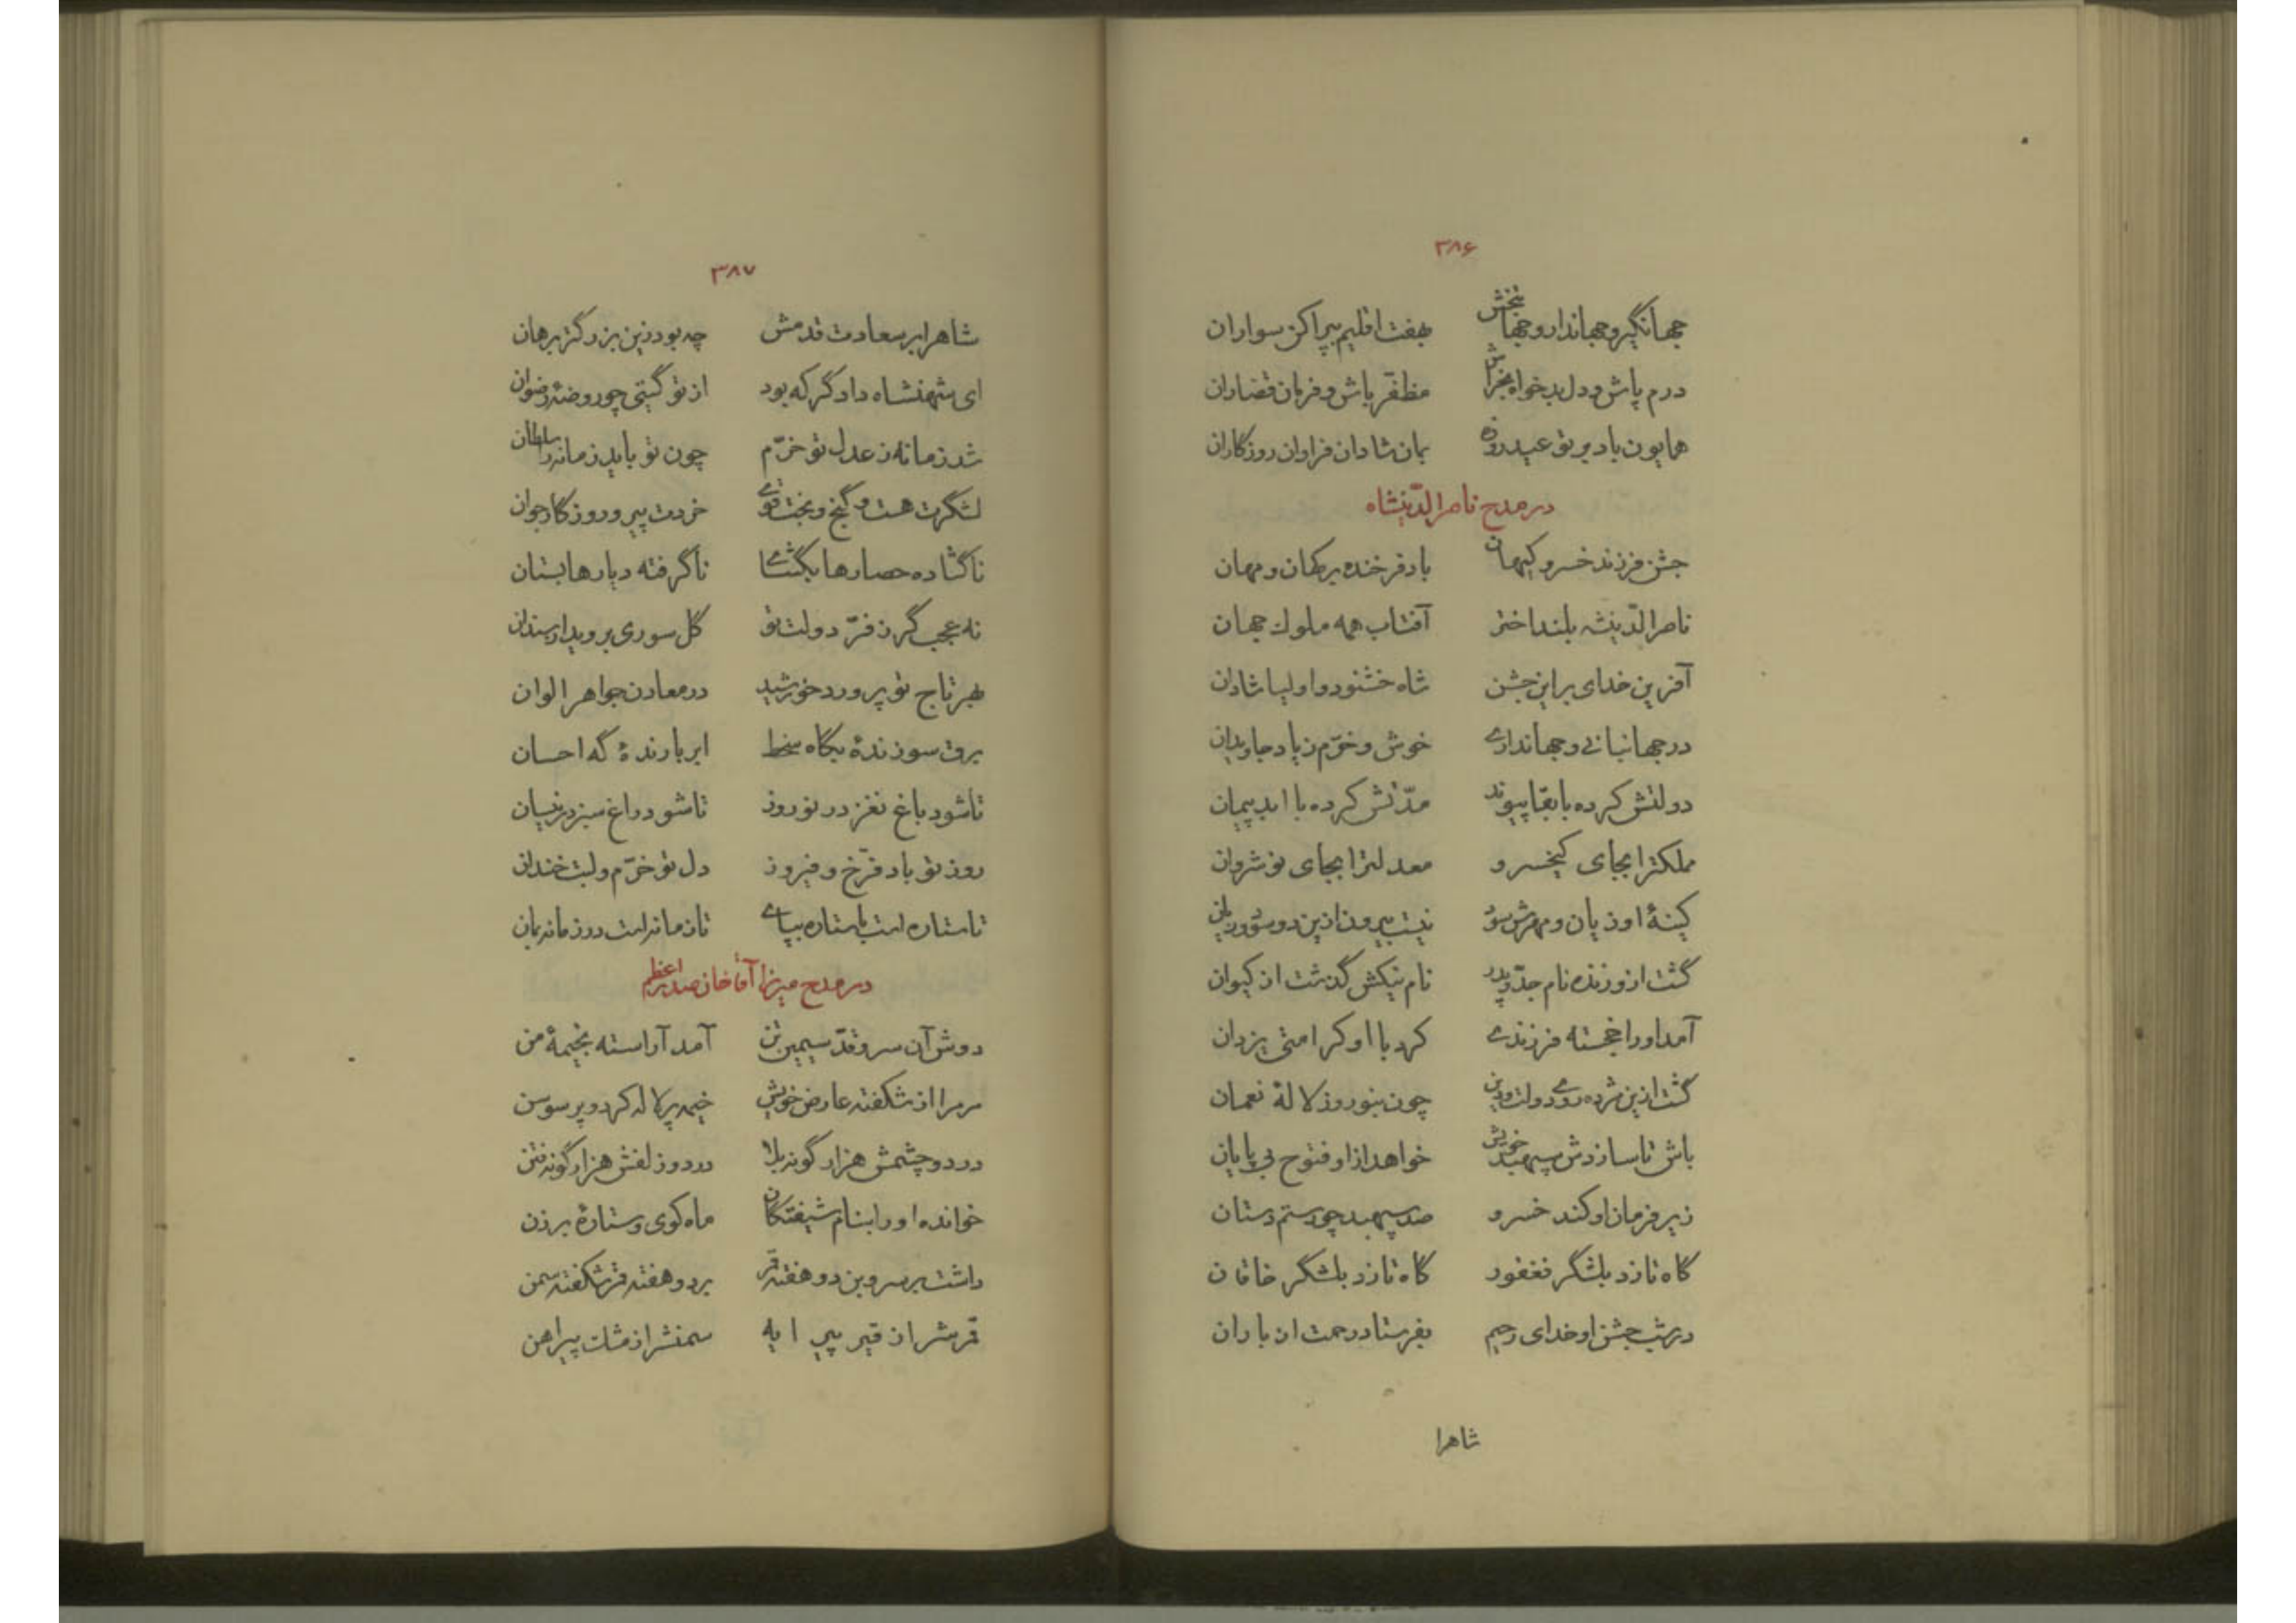 ۳۸۶
جهانگیر و جهاندار و جهانبخش بهفت اقلیم بپراکن سواران
درم پاش و دل بدخواه بخراش مظفّر باش و فرمان قضاران
همایون باد بر تو عید روزه بمان شادان فراوان روزکاران
در مدح ناصرالدّینشاه
جشن فرزند خسرو کیهان باد فرخنده بر کهان و مهان
ناصرالدّینشه بلند اختر آفتاب همه ملوک جهان
آفرین خدای بر این جشن شاه خشنود و اولیا شادان
در جهانبانی و جهانداری خوش و خرّم زیاد جاویدان
دولتش کرده با بقا پیوند مدّتش کرده با ابد پیمان
ملکترا بجای کیخسرو معدلترا بجای نوشروان
کینهٔ او زیان و مهرش سود نیست بیرون ازین دو سود و زیان
گشت ازو زنده نام جدّ و پدر نام نیکش گذشت از کیوان
آمد او را خجسته فرزندی کرد با او کرامتی یزدان
گشت ازین مژده روی دولت و دین چون بنوروز لالهٔ نعمان
باش تا سازدش سپهبد خویش خواهد از او فتوح بی پایان
زیر فرمان او کند خسرو صد سپهبد چو رستم دستان
گاه تازد بلشگر فغفور گاه تازد بلشگر خاقان
در شب جشن او خدای رحیم بفرستاد رحمت از باران
شاهرا
۳۸۷
شاهرا بر سعادت قدمش چه بود زین بزرگتر برهان
ای شهنشاه دادگر که بود از تو گیتی چو روضهٔ رضوان
شد زمانه ز عدل تو خرّم چون تو باید زمانه را سلطان
لشگرت هست و گنج و بخت قوی خردت پیر و روزگار جوان
ناگشاده حصارها بگشای ناگرفته دیارها بستان
نه عجب گر ز فرّ دولت تو گل سوری بروید از سندان
بهر تاج تو پرورد خورشید در معادن جواهر الوان
برق سوزندهٔ بگاه سخط ابر بارندهٔ گه احسان
تا شود باغ نغز در نوروز تا شود راغ سبز در نیسان
روز تو باد فرّخ و فیروز دل تو خرّم و لبت خندان
تا ستاره است با ستاره بپای تا زمانه است در زمانه بمان
در مدح میرزا آقا خان صدر اعظم
دوش آن سرو قدّ سیمین تن آمد آراسته بخیمهٔ من
مر مرا از شکفته عارض خویش خیمه پر لاله کرد و پر سوسن
در دو چشمش هزار گونه بلا در دو زلفش هزار گونه فتن
خوانده او را بنام شیفتگان ماه کوی و ستارهٔ برزن
داشت بر سرو بن دو هفته قمر بر دو هفته قمر شکفته سمن
قمرش را ز قیر پیرایه سمنش را ز مشک پیراهن